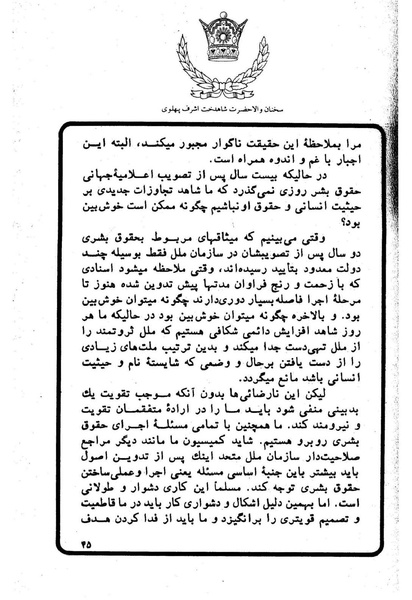 سخنان والاحضرت شاهدخت اشرف پهلوی
مرا بملاحظهٔ این حقیقت ناگوار مجبور میکند، البته این
اجبار با غم و اندوه همراه است.
در حالیکه بیست سال پس از تصویب اعلامیهٔ جهانی
حقوق بشر روزی نمی‌گذرد که ما شاهد تجاوزات جدیدی بر
حیثیت انسانی و حقوق او نباشیم چگونه ممکن است خوش‌بین
بود؟
وقتی می‌بینیم که میثاقهای مربوط بحقوق بشری
دو سال پس از تصویبشان در سازمان ملل فقط بوسیله چند
دولت معدود بتأیید رسیده‌اند، وقتی ملاحظه میشود اسنادی
که با زحمت و رنج فراوان مدتها پیش تدوین شده هنوز تا
مرحلهٔ اجرا فاصله بسیار دوری دارند چگونه میتوان خوش‌بین
بود. و بالاخره چگونه میتوان خوش‌بین بود در حالیکه ما هر
روز شاهد افزایش دائمی شکافی هستیم که ملل ثروتمند را
از ملل تهی‌دست جدا میکند و بدین ترتیب ملت‌های زیادی
را از دست یافتن برحال و وضعی که شایستهٔ نام و حیثیت
انسانی باشد مانع میگردد.
لیکن این نارضائی‌ها بدون آنکه موجب تقویت یك
بدبینی منفی شود باید ما را در ارادهٔ متفقمان تقویت
و نیرومند کند. ما همچنین با تمامی مسئلهٔ اجرای حقوق
بشری روبرو هستیم. شاید کمیسیون ما مانند دیگر مراجع
صلاحیت‌دار سازمان ملل متحد اینك پس از تدوین اصول
باید بیشتر باین جنبهٔ اساسی مسئله یعنی اجرا و عملی‌ساختن
حقوق بشری توجه کند. مسلماً این کاری دشوار و طولانی
است. اما بهمین دلیل اشکال و دشواری کار باید در ما قاطعیت
و تصمیم قویتری را برانگیزد و ما باید از فدا کردن هدف
۴۵